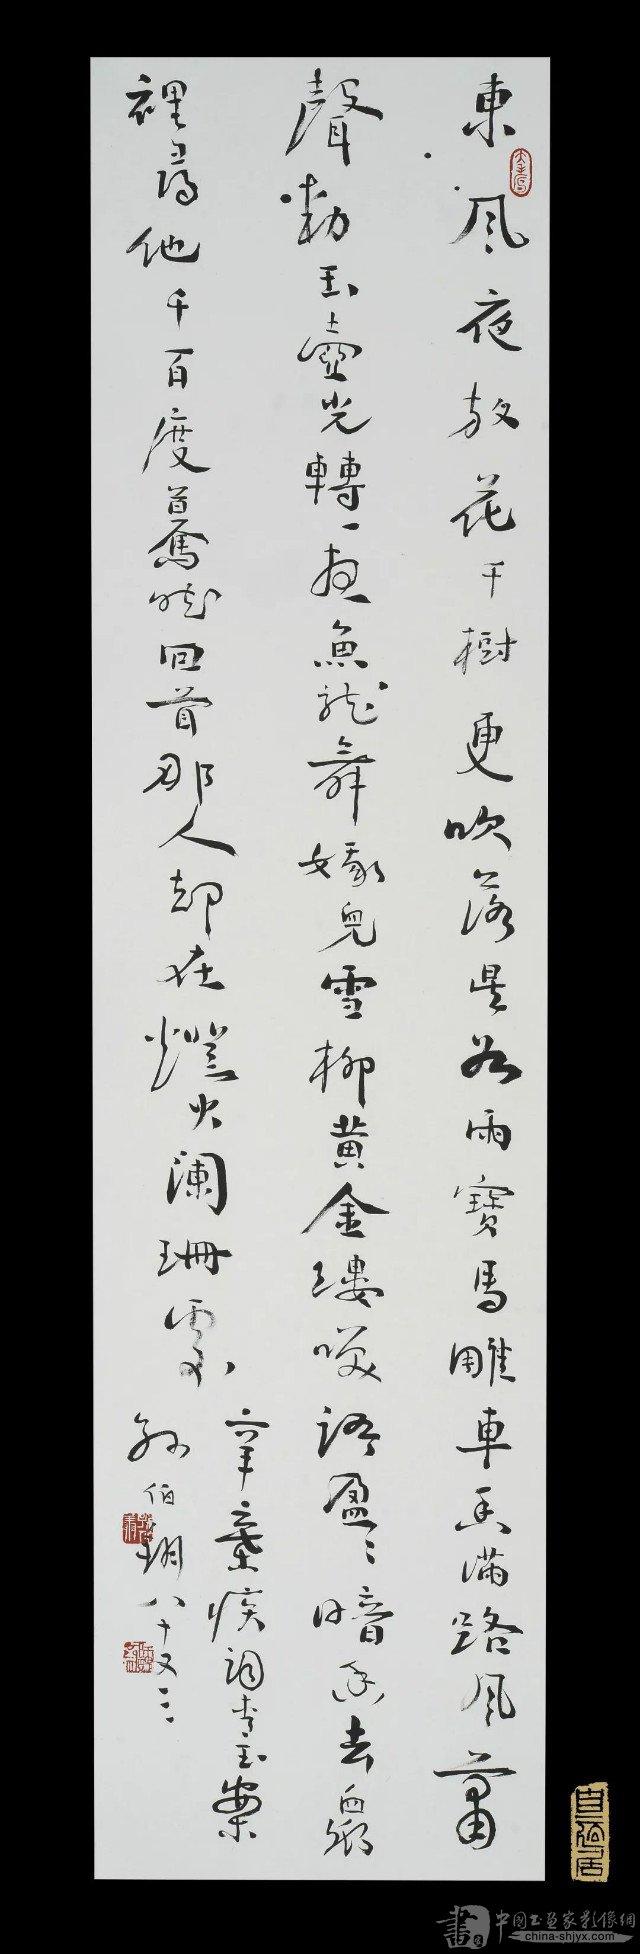 東風夜放花千樹更吹落星如雨寶馬雕車香滿路風蕭
聲動玉壺光轉一夜魚龍舞娥兒雪柳黃金縷咲語盈〻暗香去衆
裡尋他千百度驀然回首那人却在燈火瀾珊處
辛棄疾詞青玉案
孫伯翔八十又三
中国书画家影像網
china-shjyx.com